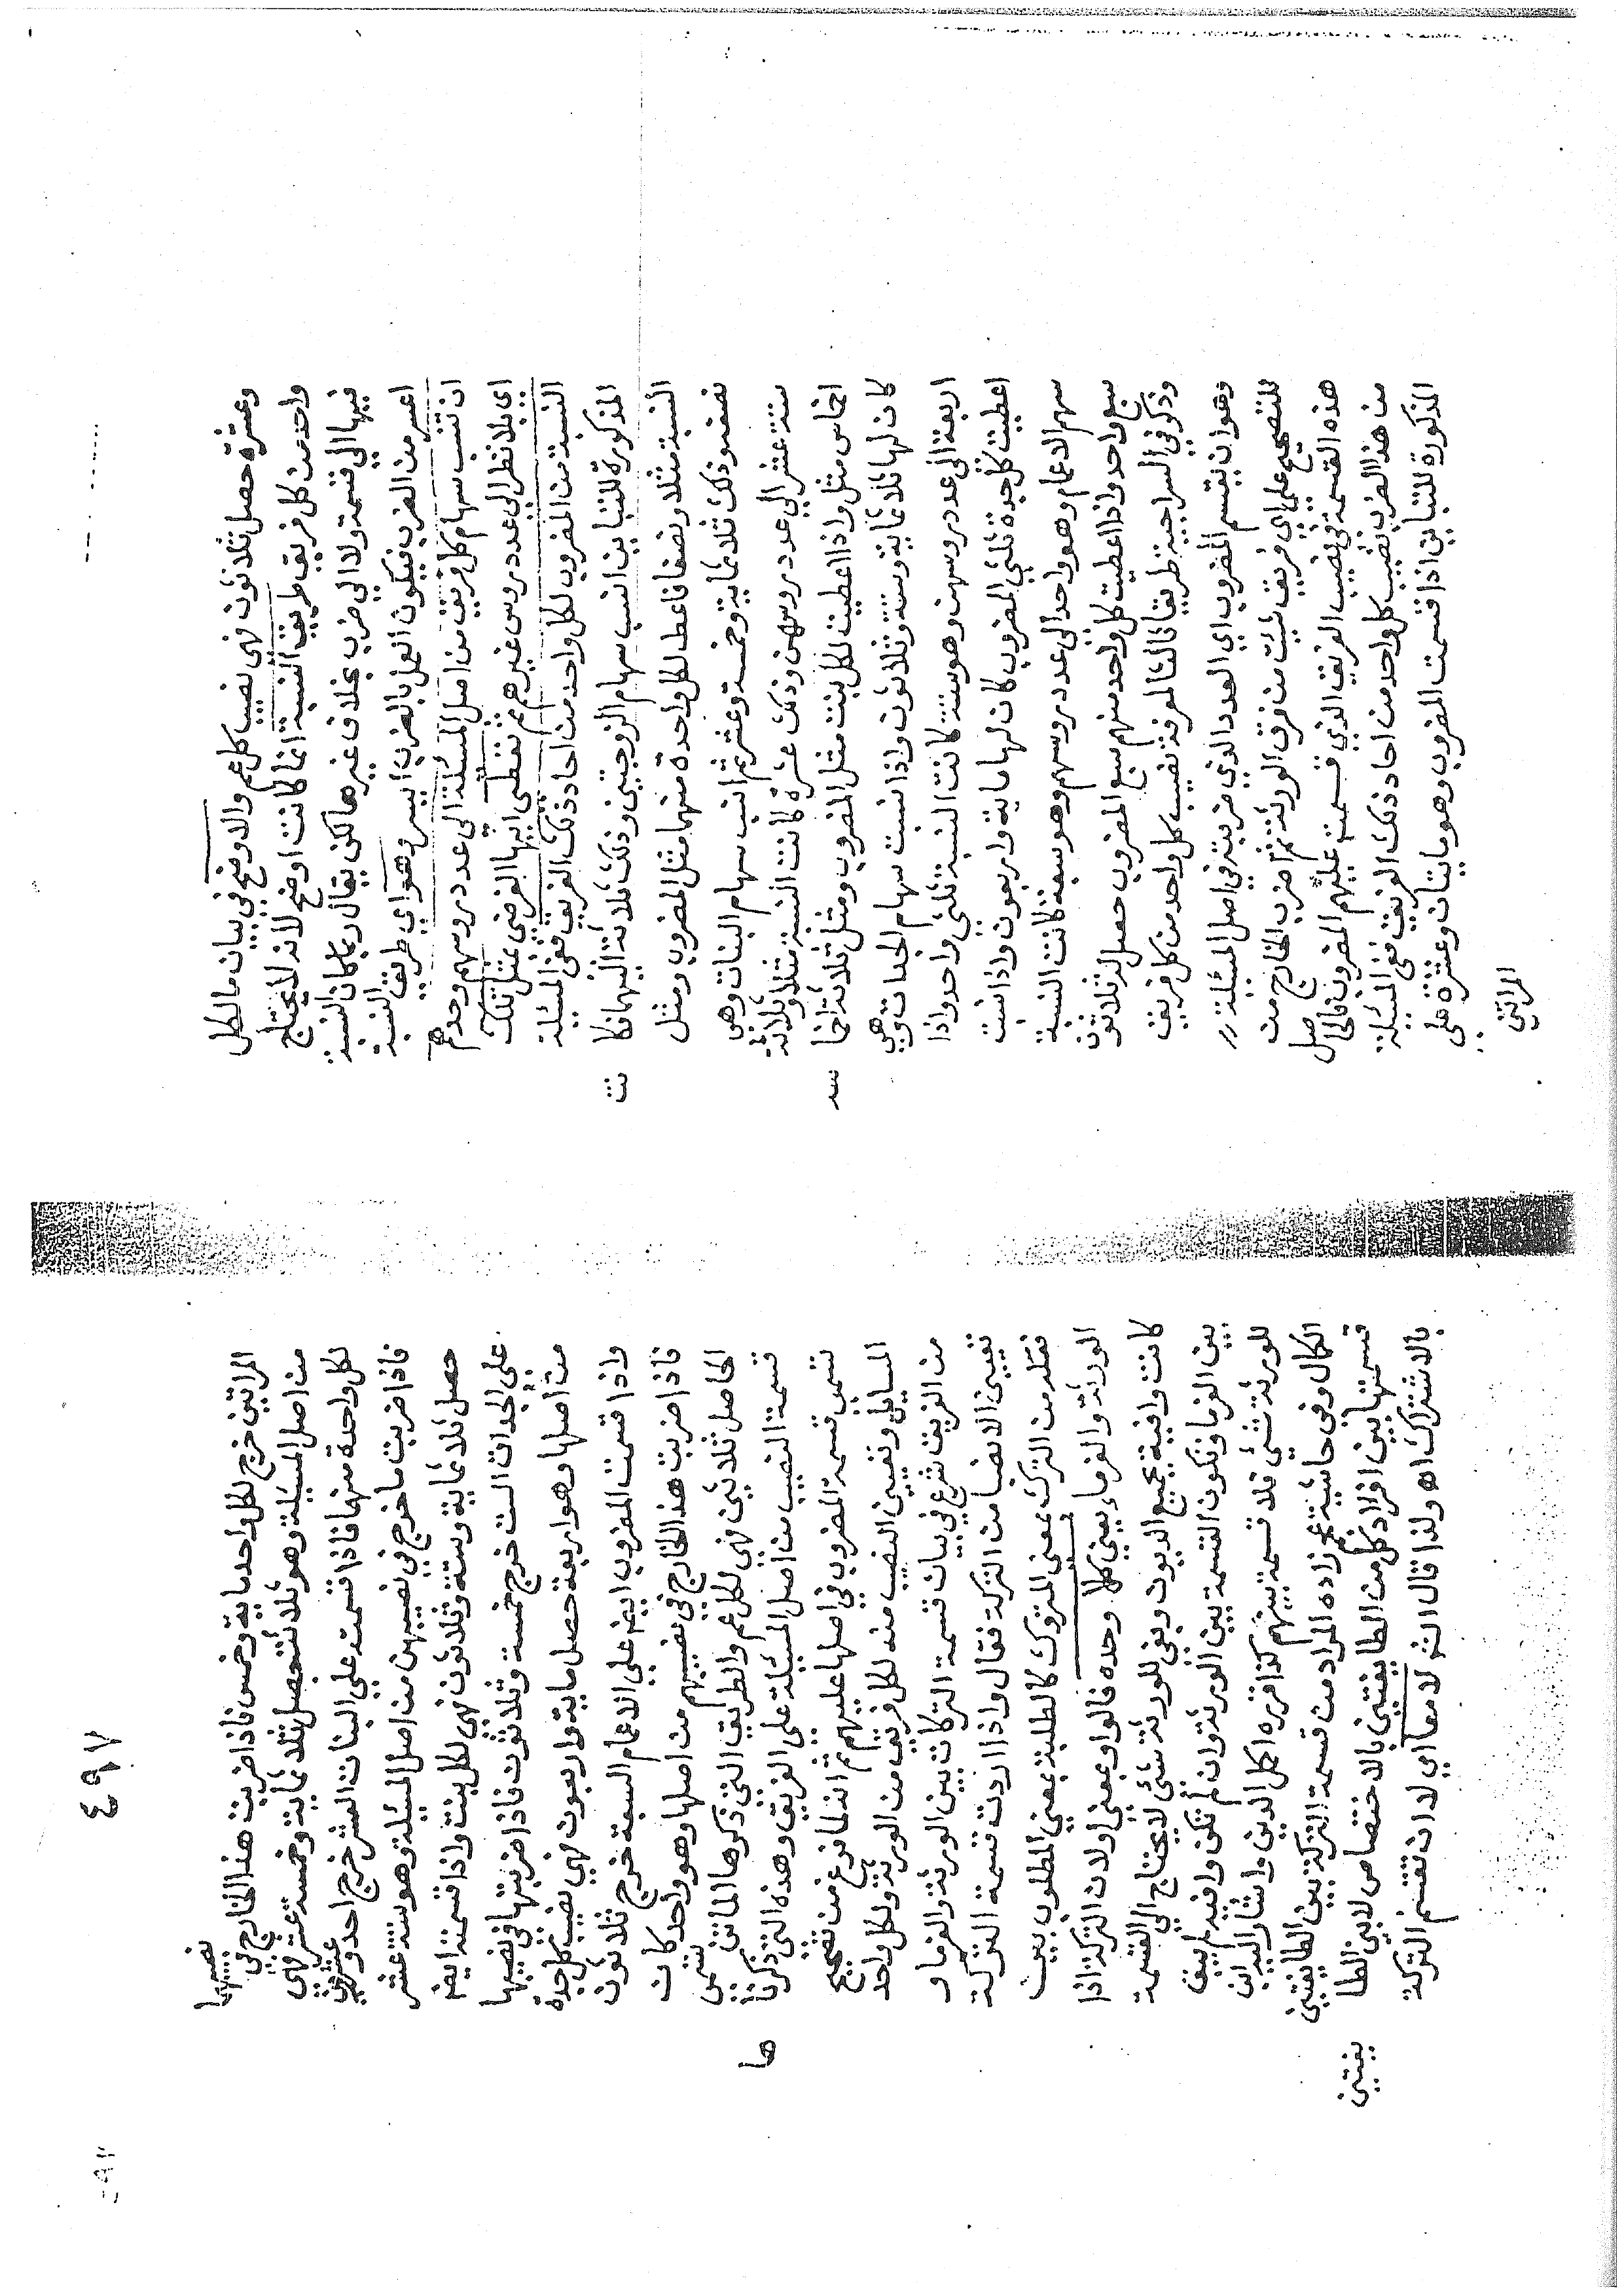 وعشرة حصل ثلاثون فهى نصيب كل عم والاوضح في بيان ما لكل
واحد من كل فريق طريق النسبة انما كانت اوضح لانه لا يحتاج
فيها الى قسمة ولا الى ضرب بخلاف غيرها لكن يقال ربما كان النسبة
اعسر من الضرب فيكون العمل بالضرب ايسر وهو اي طريق النسبة
ان تنسب سهام كل فريق من اصل المسئلة الى عدد روسهم وحدهم
اى بلا نظر الى عدد روس غيرهم ثم تعطى ايها الفرضى بمثل تلك
النسبة من المضروب لكل واحد من احاد ذلك الفريق ففى المسيلة
المذكورة للتباين انسب سهام الزوجتين وذلك ثلاثة اليهما تكا
نت
النسبة مثلا ونصفا فاعط لكل واحدة منهما مثل المضروب ومثل
نصفه وذلك ثلاثماية وخمسة وعشر ثم انسب سهام البنات وهى
ستة عشر الى عدد روسهن وذلك عشرة كانت النسبة مثلا وثلاثة
اخماس مثل واذا اعطيت لكل بنت مثل المضروب ومثل ثلاثة اخما
سه
كان لها ثلاثماية وستة وثلاثون واذا نسبت سهام الجدات وهي
اربعة الى عدد روسهن وهو ستة كانت النسبة ثلثي واحد واذا
اعطيت كل جدة ثلثي المضروب كان لها ماية واربعون واذا نسبت
سهم الاعمام وهو واحد الى عدد روسهم وهو سبعة كانت النسبة
سبع واحد واذا اعطيت كل واحد منهم سبع المضروب حصل له ثلاثون
وذكر في السراجية طريقا ثالثا لمعرفة نصيب كل واحد من كل فريق
وهو ان يقسم المضروب اي العدد الذي ضربته في اصل المسئلة
للتصحيح على اي فريق شيت من فرق الورثة ثم اضرب الخارج من
هذه القسمة في نصيب الفريق الذي قسمت عليهم المضروب فالحاصل
من هذا الضرب نصيب كل واحد من احاد ذلك الفريق ففى المسيلة
المذكورة للتباين اذا قسمت المضروب وهو مايتان وعشرة على
المراتين
٤٩٧
المراتين خرج لكل واحد ماية وخمس فاذا ضربت هذا الخارج في نصيبهما
من اصل المسيلة وهو ثلاثة تحصل ثلاثماية وخمسة عشر فهى
لكل واحدة منهما فاذا قسمته على البنات العشر خرج احد وعشرون
فاذا ضربت ما خرج في نصيبهن من اصل المسيلة وهو ستة عشر
حصل ثلاثماية وستة وثلاثون فهى لكل بنت واذا قسمته ايض
على الجدات الست خرج خمسة وثلاثون فاذا ضربتها في نصيبها
من اصلها وهو اربعة حصل ماية واربعون فهي نصيب كل جدة
واذا قسمت المضروب ايض على الاعمام السبعة خرج ثلاثون
فاذا ضربت هذا الخارج في نصيبهم من اصلها وهو واحد كان
الحاصل ثلاثين فهى لكل عم والطريق التي ذكرها الماتن تسمى
قسمة النصيب من اصل المسيلة على الفريق وهذه التى ذكرنا
ها
تسمى قسمة المضروب في اصلها عليهم ثم انه لما فرغ من تصحيح
المسايل وتعيين النصيب منه لكل فريق من الورثة ولكل واحد
من الفريق شرع في بيان قسمة التركات بين الورثة والغرما و
تعيين الانصبا من التركة فقال واذا اردت قسمة التركة
فعلة من الترك بمعنى المتروك كالطلبة بمعني المطلوب بين
الورثة والغرماء يعني كلا وحده فالواو بمعني او لان التركة اذا
كانت وافية بجميع الديون وبقى للورثة شئ لا يحتاج الى القسمة
بين الغرما وتكون القسمة بين الورثة وان لم تكن وافية لم يبق
للورثة شيئ فلا قسمة بينهم كذا قرره اكمل الدين واشار اليه ابن
الكمال وفى حاشية عجم زاده المراد من قسمة التركة بين الطايفتين
قسمتها بين افراد كل من الطايفتين بالاختصاص لا بين الطا
يفتين
بالاشتراك اه ولذا قال الش لا معا اي لا ان تقسم التركة